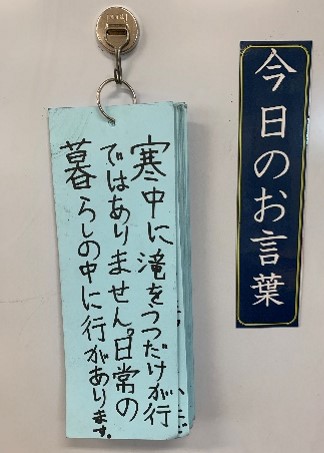 今日のお言葉
寒中に滝をうつだけが行
ではありません。日常の
暮らしの中に行があります。